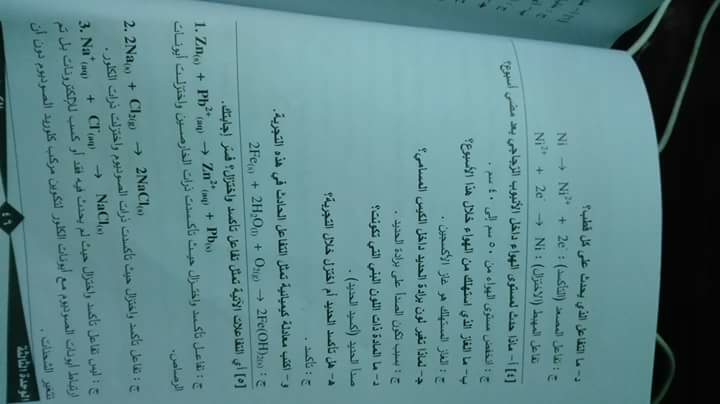 د- ما التفاعل الذي يحدث على كل قطب؟
ج : تفاعل المصعد (التأكسد) : Ni → Ni²⁺ + 2e⁻
تفاعل المهبط (الاختزال) : Ni²⁺ + 2e⁻ → Ni
[٤] أ- ماذا حدث لمستوى الهواء داخل الأنبوب الزجاجي بعد مضي أسبوع؟
ج : انخفض مستوى الهواء من ٥٠ سم إلى ٤٠ سم .
ب- ما الغاز الذي استهلك من الهواء خلال هذا الأسبوع؟
ج : الغاز المستهلك هو غاز الأكسجين .
جـ- لماذا تغير لون برادة الحديد داخل الكيس المسامي؟
ج : بسبب تكون الصدأ على برادة الحديد .
د- ما المادة ذات اللون البني التي تكونت؟
صدأ الحديد (أكسيد الحديد) .
هـ- هل تأكسد الحديد أم اختزل خلال التجربة؟
ج : تأكسد .
و- اكتب معادلة كيميائية تمثل التفاعل الحادث في هذه التجربة .
ج : 2Fe(s) + 2H₂O(l) + O₂(g) → 2Fe(OH)₂(s)
[٥] أي التفاعلات الآتية تمثل تفاعل تأكسد واختزال؟ فسّر إجابتك.
1. Zn(s) + Pb²⁺(aq) → Zn²⁺(aq) + Pb(s)
ج : تفاعل تأكسد واختزال حيث تأكسدت ذرات الخارصين واختزلت أيونات
الرصاص.
2. 2Na(s) + Cl₂(g) → 2NaCl(s)
ج : تفاعل تأكسد واختزال حيث تأكسدت ذرات الصوديوم واختزلت ذرات الكلور.
3. Na⁺(aq) + Cl⁻(aq) → NaCl(s)
ج : ليس تفاعل تأكسد واختزال حيث لم يحدث فيه فقد أو كسب للإلكترونات بل تم
ارتباط أيونات الصوديوم مع أيونات الكلور لتكوين مركب كلوريد الصوديوم دون أن
تتغير الشحنات .
٤٦
الوحدة الثالثة